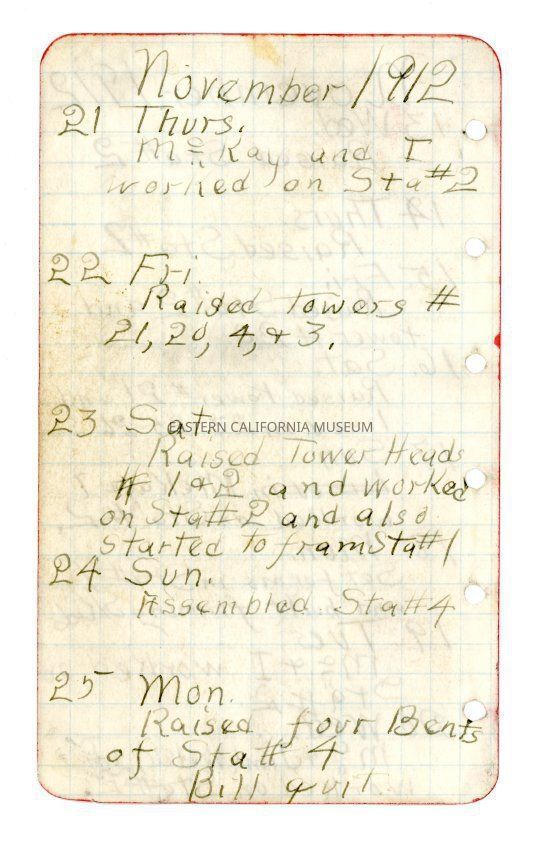 November 1912
21 Thurs.
McKay and I
worked on Sta #2
22 Fri.
Raised Towers #
21, 20, 4, & 3.
23 Sat.
EASTERN CALIFORNIA MUSEUM
Raised Tower Heads
# 1 & 2 and worked
on Sta # 2 and also
started to fram Sta #1
24 Sun.
Assembled Sta #4
25 Mon.
Raised four Bents
of Sta # 4
Bill quit